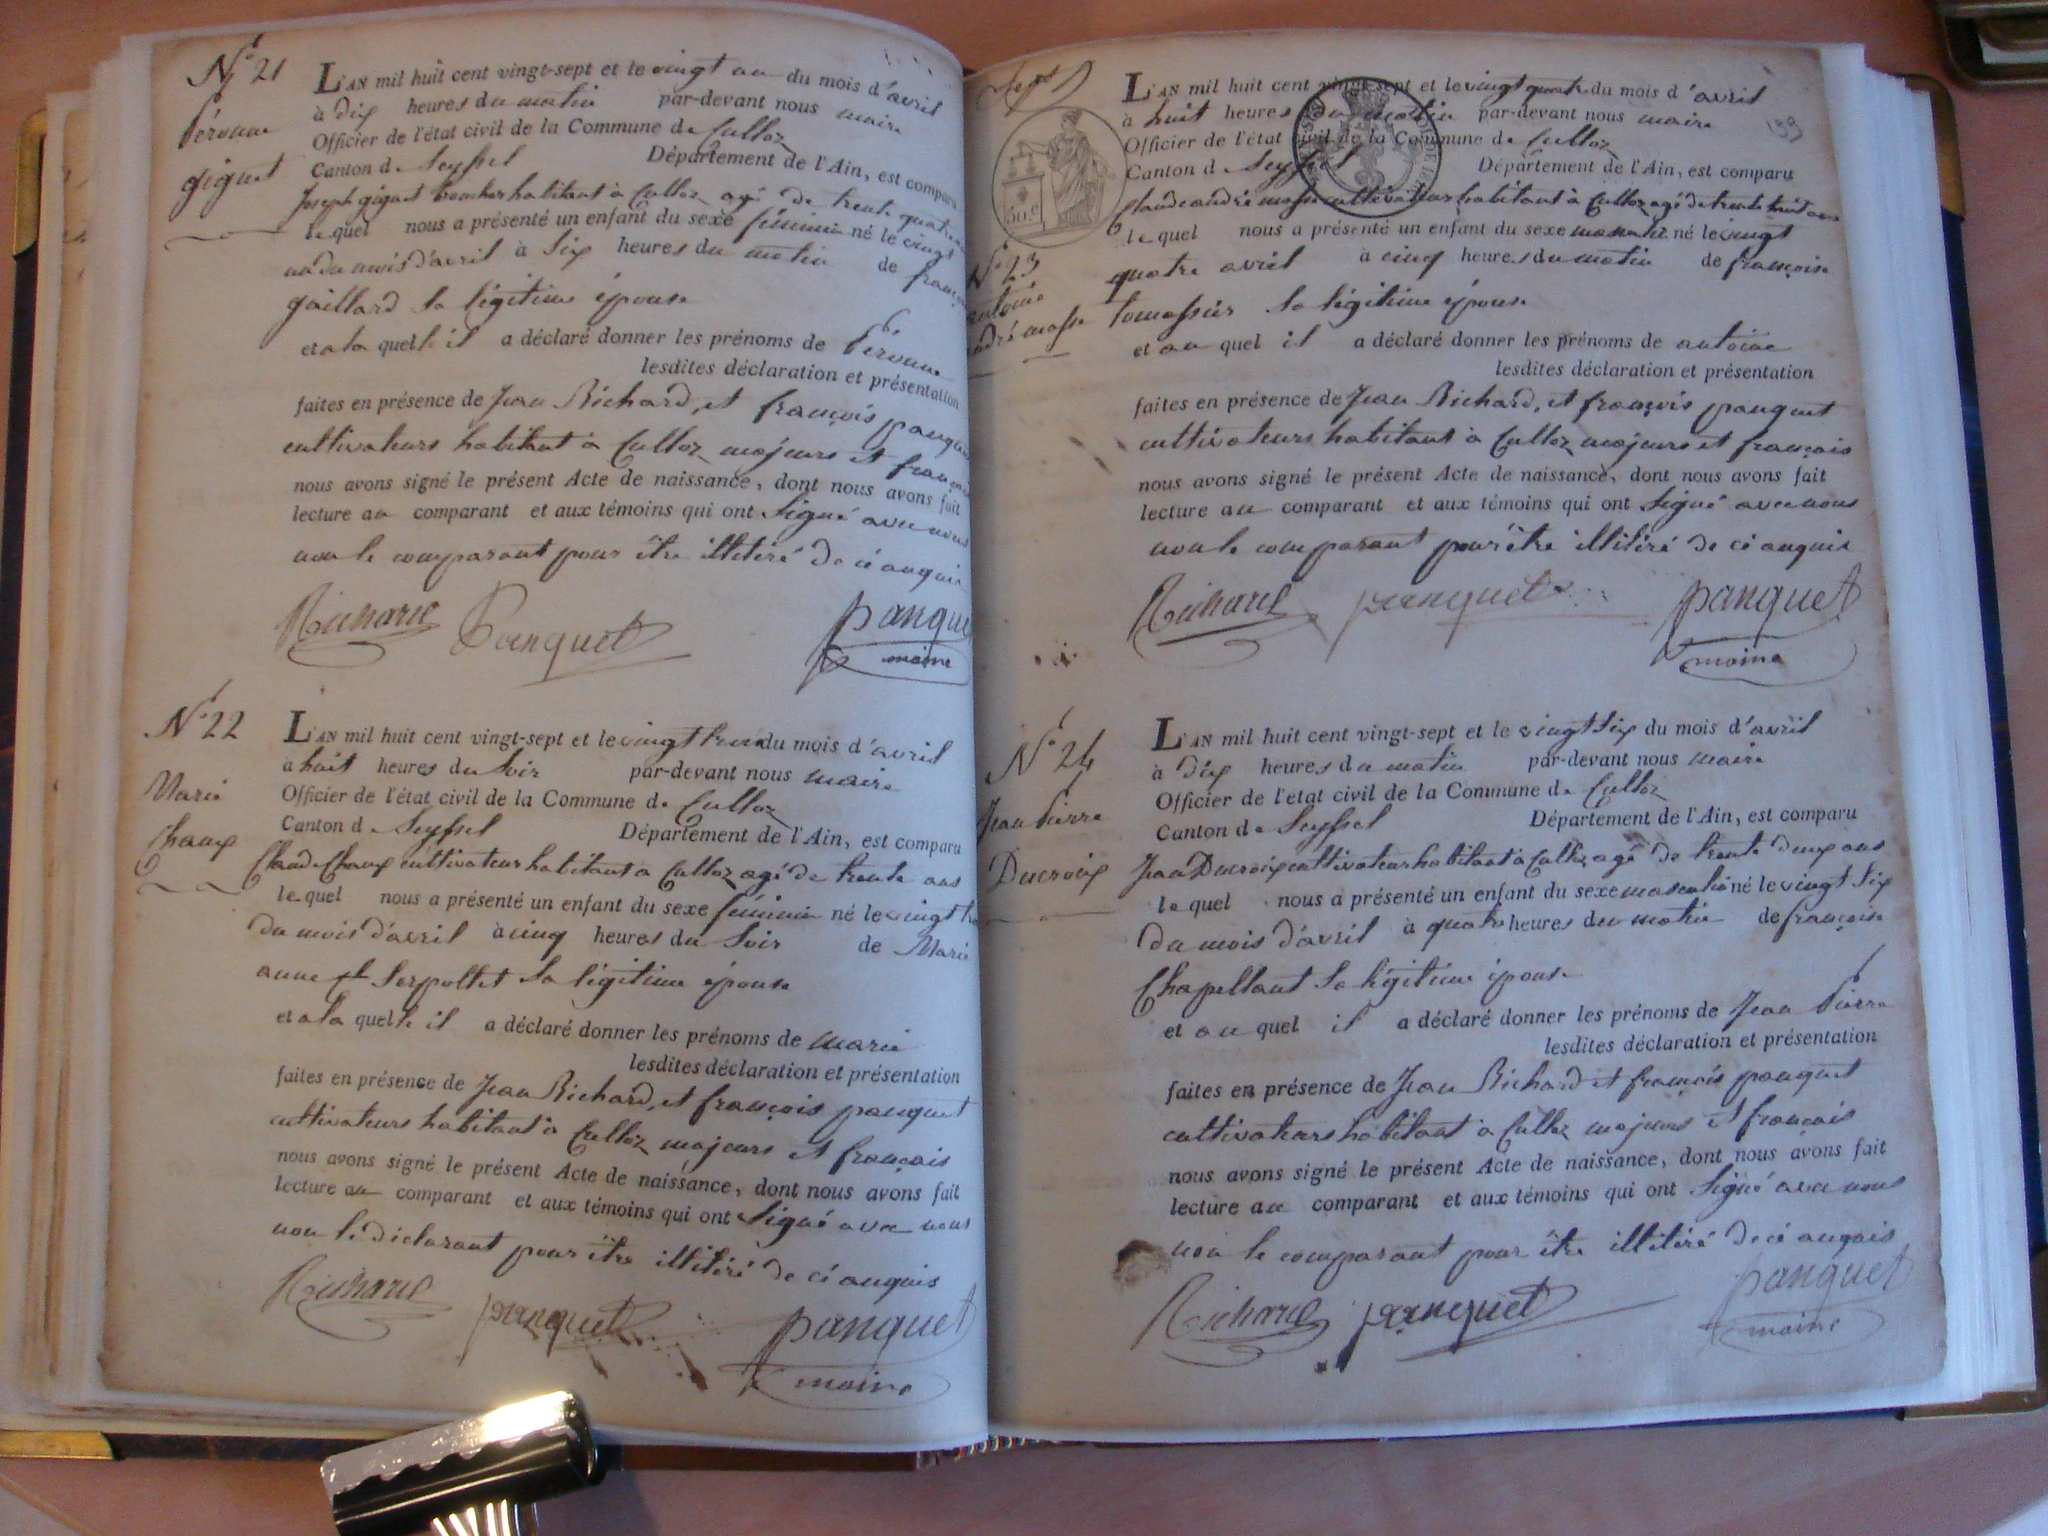 N° 21
Péronne
giguet
L'AN mil huit cent vingt-sept et le vingt un du mois d'avril
à dix heures du matin par-devant nous maire
Officier de l'état civil de la Commune de Culloz
Canton de Seyssel Département de l'Ain, est comparu
Joseph giguet habitant à Culloz agé de trente quatre
lequel nous a présenté un enfant du sexe féminin né le vingt
un du mois d'avril à six heures du matin de
gaillard sa légitime épouse
et a la quelle il a déclaré donner les prénoms de Péronne
lesdites déclaration et présentation
faites en présence de Jean Richard, et françois panquet
cultivateurs habitant à Culloz majeurs et français
nous avons signé le présent Acte de naissance, dont nous avons fait
lecture au comparant et aux témoins qui ont signé avec nous
non le comparant pour être illitéré de cé anquis
Richard Panquet panquet
maire
N° 22
Marie
Chaux
L'AN mil huit cent vingt-sept et le vingt trois du mois d'avril
à huit heures du soir par-devant nous maire
Officier de l'état civil de la Commune de Culloz
Canton de Seyssel Département de l'Ain, est comparu
Claude Chaux cultivateur habitant à Culloz agé de trente ans
lequel nous a présenté un enfant du sexe féminin né le vingt
du mois d'avril à cinq heures du soir de Marie
anne Serpollet sa légitime épouse
et a la quelle il a déclaré donner les prénoms de marie
lesdites déclaration et présentation
faites en présence de Jean Richard, et françois panquet
cultivateurs habitant à Culloz majeurs et français
nous avons signé le présent Acte de naissance, dont nous avons fait
lecture au comparant et aux témoins qui ont signé avec nous
non le déclarant pour être illitéré de cé anquis
Richard panquet panquet
maire
50 c
N° 23
antoine
andré masse
L'AN mil huit cent vingt-sept et le vingt quatre du mois d'avril
à huit heures du matin par-devant nous maire
Officier de l'état civil de la Commune de Culloz
Canton de Seyssel Département de l'Ain, est comparu
Claude andré masse cultivateur habitant à Culloz agé de trente huit ans
lequel nous a présenté un enfant du sexe masculin né le vingt
quatre avril à cinq heures du matin de françoise
sa légitime épouse
et au quel il a déclaré donner les prénoms de antoine
lesdites déclaration et présentation
faites en présence de Jean Richard, et françois panquet
cultivateurs habitant à Culloz majeurs et français
nous avons signé le présent Acte de naissance, dont nous avons fait
lecture au comparant et aux témoins qui ont signé avec nous
non le comparant pour être illitéré de cé anquis
Richard panquet panquet
maire
N° 24
Jean Pierre
Ducroix
L'AN mil huit cent vingt-sept et le vingt six du mois d'avril
à dix heures du matin par-devant nous maire
Officier de l'état civil de la Commune de Culloz
Canton de Seyssel Département de l'Ain, est comparu
Jean Ducroix cultivateur habitant à Culloz agé de trente deux ans
lequel nous a présenté un enfant du sexe masculin né le vingt six
du mois d'avril à quatre heures du matin de françoise
Chapellant sa légitime épouse
et au quel il a déclaré donner les prénoms de Jean Pierre
lesdites déclaration et présentation
faites en présence de Jean Richard et françois panquet
cultivateurs habitant à Culloz majeurs et français
nous avons signé le présent Acte de naissance, dont nous avons fait
lecture au comparant et aux témoins qui ont signé avec nous
non le comparant pour être illitéré de cé anquis
Richard panquet panquet
maire